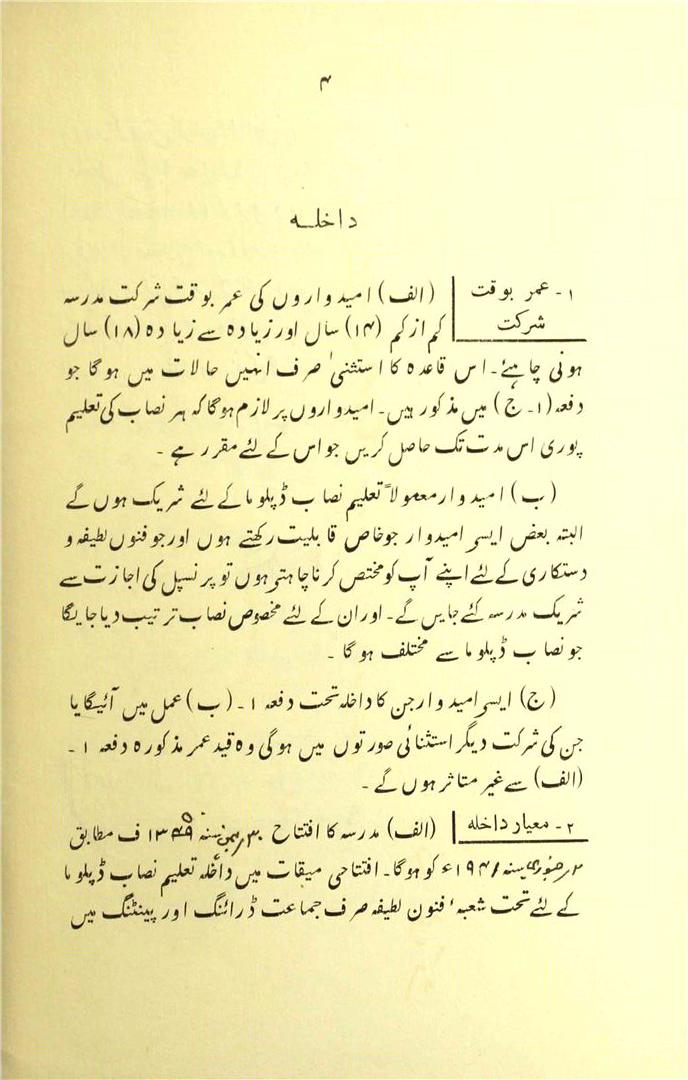 ۴
داخلہ
۱۔ عمر بوقت شرکت
(الف) امیدواروں کی عمر بوقت شرکت مدرسہ
کم از کم (۱۴) سال اور زیادہ سے زیادہ (۱۸) سال
ہونی چاہیئے۔ اس قاعدہ کا استثنیٰ صرف انہیں حالات میں ہوگا جو
دفعہ (۱۔ ج) میں مذکور ہیں۔ امیدواروں پر لازم ہوگا کہ ہر نصاب کی تعلیم
پوری اس مدت تک حاصل کریں جو اس کے لئے مقرر ہے ۔
(ب) امیدوار معمولاً تعلیم نصاب ڈپلوما کے لئے شریک ہوں گے
البتہ بعض ایسے امیدوار جو خاص قابلیت رکھتے ہوں اور جو فنون لطیفہ و
دستکاری کے لئے اپنے آپ کو مختص کرنا چاہتے ہوں تو پرنسپل کی اجازت سے
شریک مدرسہ کئے جایں گے۔ اور ان کے لئے مخصوص نصاب ترتیب دیا جایگا
جو نصاب ڈپلوما سے مختلف ہوگا ۔
(ج) ایسے امیدوار جن کا داخلہ تحت دفعہ ۱ ۔ (ب) عمل میں آئیگا یا
جن کی شرکت دیگر استثنائی صورتوں میں ہوگی وہ قید عمر مذکورہ دفعہ ۱ ۔
(الف) سے غیر متاثر ہوں گے ۔
۲۔ معیار داخلہ
(الف) مدرسہ کا افتتاح بہمن سنہ ف مطابق
سنہ ۱۹۴۱ء کو ہوگا۔ افتتاحی میقات میں داخلہ تعلیم نصاب ڈپلوما
کے لئے تحت شعبۂ فنون لطیفہ صرف جماعت ڈرائنگ اور پینٹنگ میں